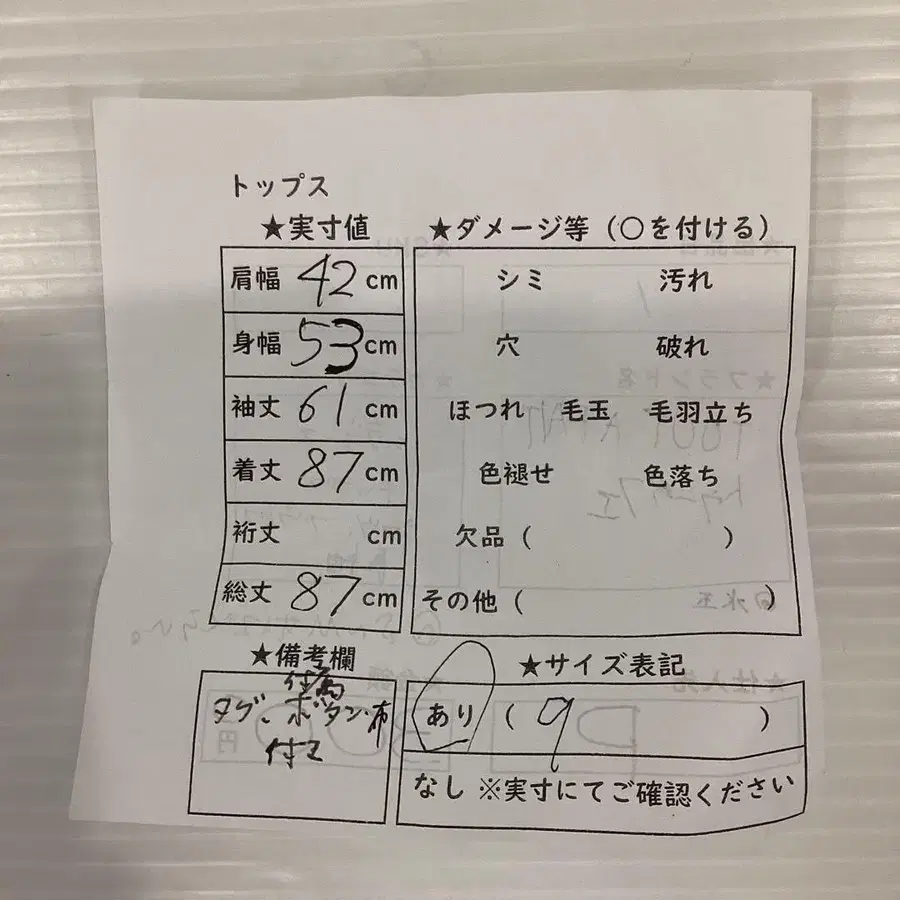 トップス
★実寸値
肩幅 42 cm
身幅 53 cm
袖丈 61 cm
着丈 87 cm
裄丈 cm
総丈 87 cm
★ダメージ等（○を付ける）
シミ 汚れ
穴 破れ
ほつれ 毛玉 毛羽立ち
色褪せ 色落ち
欠品（ ）
その他（ ）
★備考欄
付属
タグ、ボタン・布
付き
★サイズ表記
あり（ 9 ）
なし ※実寸にてご確認ください